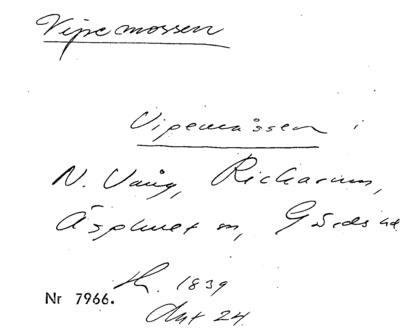 Vipemossen
Vipemåssen i
N. Vång, Rickarum,
Äsphult m, Gärds hd
Nr 7966. 1839
Akt 24